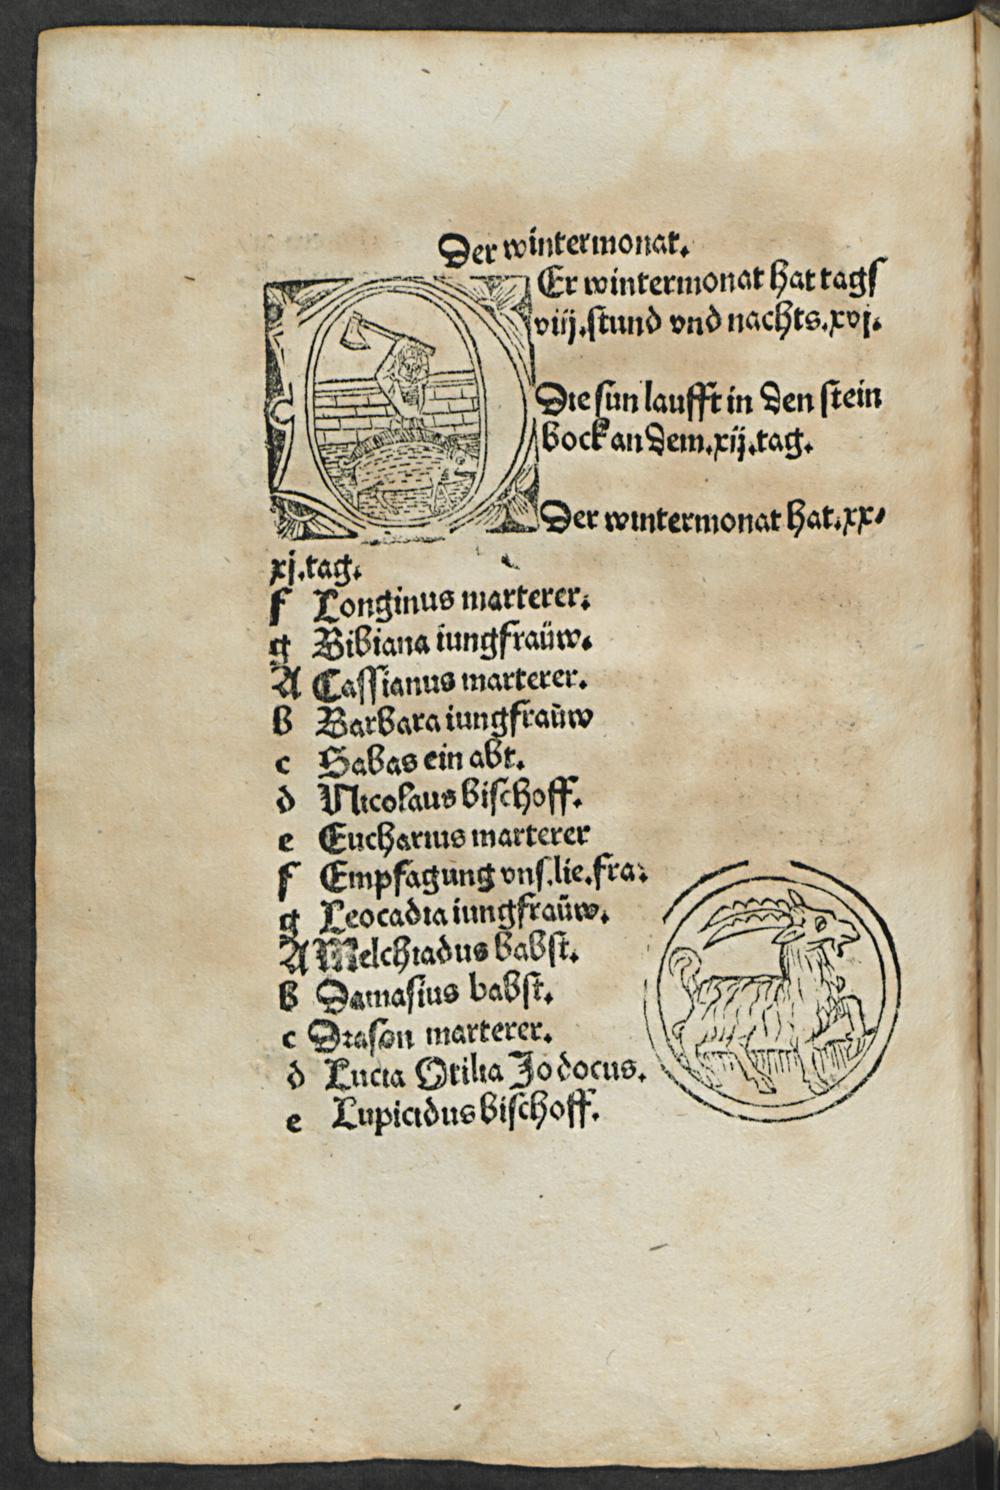 Der wintermonat.
Er wintermonat hat tags
viij.stund vnd nachts.xvj.
Die sun laufft in den stein
bock an dem.xij.tag.
Der wintermonat hat.xx⸗
xj.tag.
f Longinus marterer.
g Bibiana iungfraüw.
A Cassianus marterer.
b Barbara iungfraüw
c Sabas ein abt.
d Nicolaus bischoff.
e Eucharius marterer
f Empfagung vns.lie.fra.
g Leocadia iungfraüw.
A Melchiadus babst.
b Damasius babst.
c Drason marterer.
d Lucia Otilia Jodocus.
e Lupicidus bischoff.